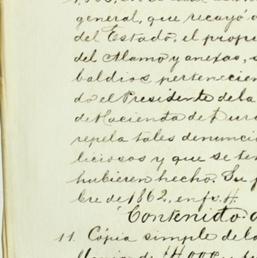 general, que recayó
del Estado, el propi
del Alamo y anexas, s
baldios pertenecien
do el Presidente de la
de Hacienda de Dur
repela tales denunci
liciosos y que se ten
hubieren hecho. Su
bre de 1862, en fs. 4
Contenido
11. Cópia simple de lo